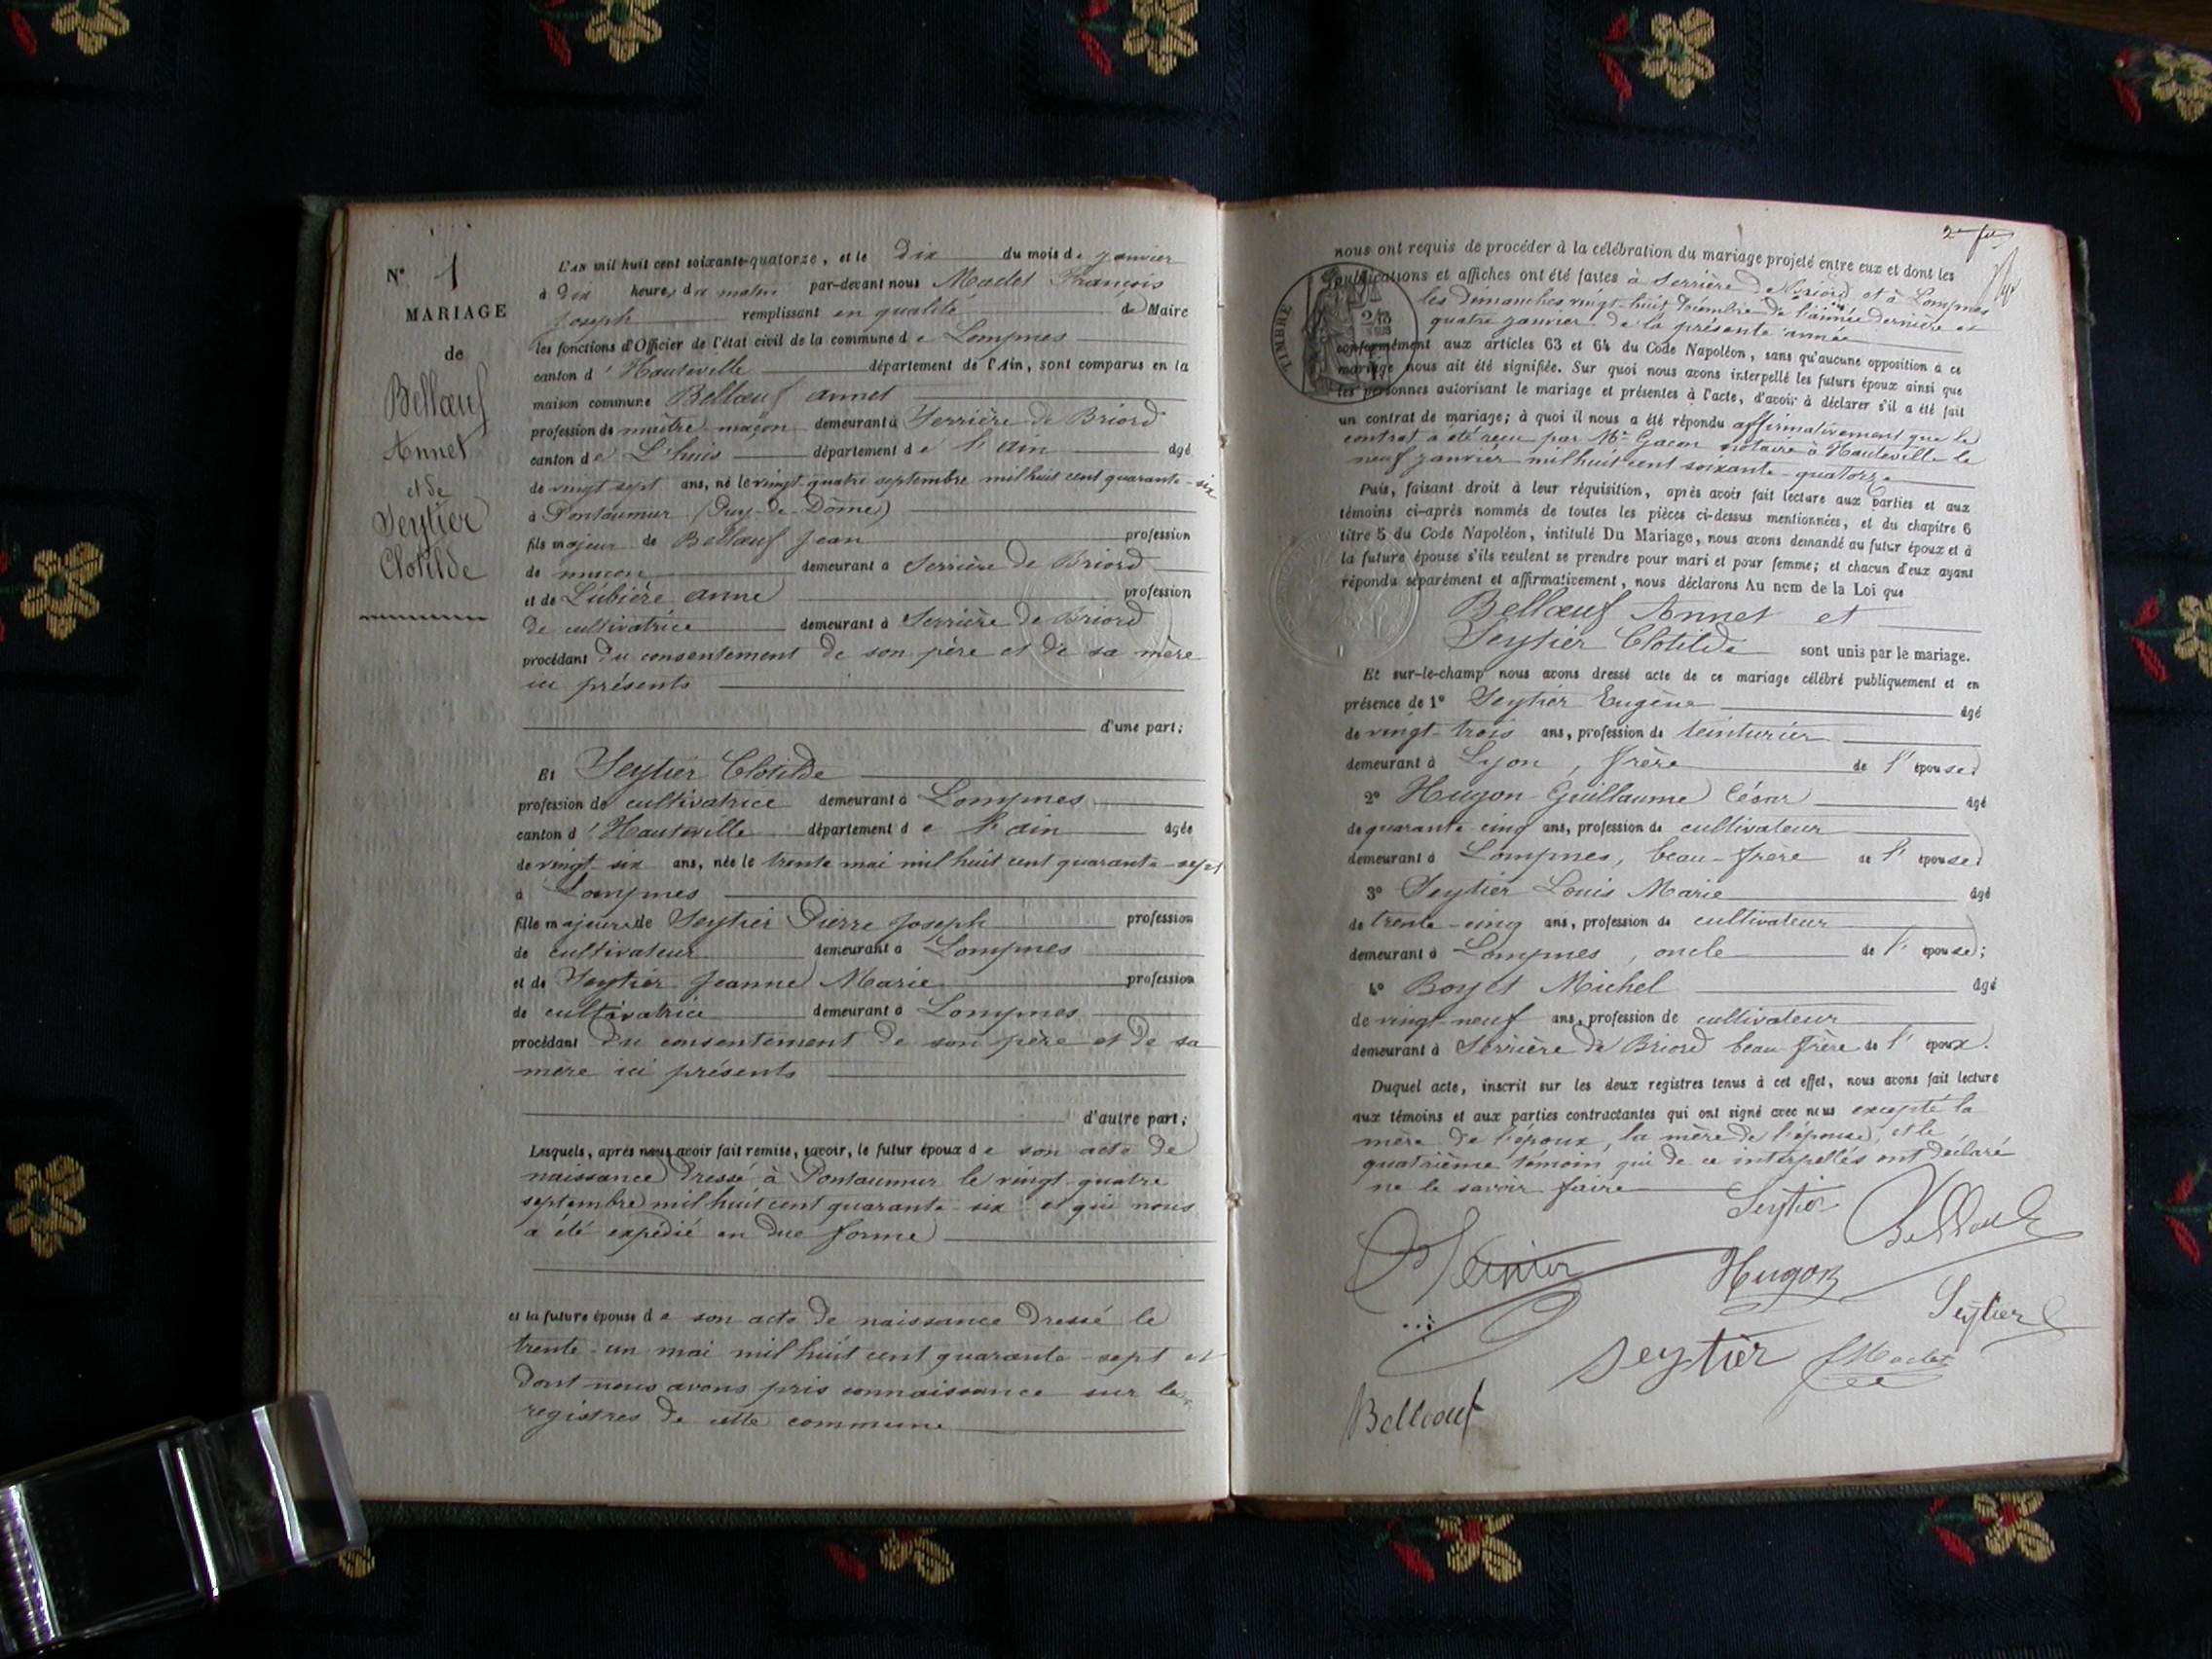 N° 1
MARIAGE
de
Bellœuf
Annet
et de
Seytier
Clotilde
L'AN mil huit cent soixante-quatorze, et le Dix du mois de janvier
à Dix heures du matin par-devant nous Madet François
Joseph remplissant en qualité de Maire
les fonctions d'Officier de l'état civil de la commune de Lompnes
canton d'Hauteville département de l'Ain, sont comparus en la
maison commune Bellœuf Annet
profession de maître maçon demeurant à Serrière de Briord
canton de L'huis département de l'ain âgé
de vingt sept ans, né le vingt-quatre septembre mil huit cent quarante-six
à Pontaumur (Puy-de-Dôme)
fils majeur de Bellœuf Jean profession
de maçon demeurant à Serrière de Briord
et de Lubière Anne profession
de cultivatrice demeurant à Serrière de Briord
procédant du consentement de son père et de sa mère
ici présents
d'une part;
Et Seytier Clotilde
profession de cultivatrice demeurant à Lompnes
canton d'Hauteville département de l'ain âgée
de vingt-six ans, née le trente mai mil huit cent quarante-sept
à Lompnes
fille majeure de Seytier Pierre Joseph profession
de cultivateur demeurant à Lompnes
et de Seytier Jeanne Marie profession
de cultivatrice demeurant à Lompnes
procédant du consentement de son père et de sa
mère ici présents
d'autre part;
Lesquels, après nous avoir fait remise, savoir, le futur époux de son acte de
naissance dressé à Pontaumur le vingt-quatre
septembre mil huit cent quarante-six et qui nous
a été expédié en due forme
et la future épouse de son acte de naissance dressé le
trente-un mai mil huit cent quarante-sept et
dont nous avons pris connaissance sur les
registres de cette commune
nous ont requis de procéder à la célébration du mariage projeté entre eux et dont les
publications et affiches ont été faites à Serrière de Briord et à Lompnes
les dimanches vingt-huit décembre de l'année dernière et
quatre janvier de la présente année
TIMBRE
conformément aux articles 63 et 64 du Code Napoléon, sans qu'aucune opposition à ce
mariage nous ait été signifiée. Sur quoi nous avons interpellé les futurs époux ainsi que
les personnes autorisant le mariage et présentes à l'acte, d'avoir à déclarer s'il a été fait
un contrat de mariage; à quoi il nous a été répondu affirmativement que le
contrat a été reçu par Me Gacon notaire à Hauteville le
neuf janvier mil huit cent soixante-quatorze
Puis, faisant droit à leur réquisition, après avoir fait lecture aux parties et aux
témoins ci-après nommés de toutes les pièces ci-dessus mentionnées, et du chapitre 6
titre 5 du Code Napoléon, intitulé Du Mariage, nous avons demandé au futur époux et à
la future épouse s'ils veulent se prendre pour mari et pour femme; et chacun d'eux ayant
répondu séparément et affirmativement, nous déclarons Au nom de la Loi que
Bellœuf Annet et
Seytier Clotilde sont unis par le mariage.
Et sur-le-champ nous avons dressé acte de ce mariage célébré publiquement et en
présence de 1° Seytier Eugène âgé
de vingt-trois ans, profession de teinturier
demeurant à Lyon, frère de l'épouse
2° Hugon Guillaume César âgé
de quarante-cinq ans, profession de cultivateur
demeurant à Lompnes, beau-frère de l'épouse
3° Seytier Louis Marie âgé
de trente-cinq ans, profession de cultivateur
demeurant à Lompnes, oncle de l'épouse;
4° Boyet Michel âgé
de vingt-neuf ans, profession de cultivateur
demeurant à Serrière de Briord beau frère de l'époux.
Duquel acte, inscrit sur les deux registres tenus à cet effet, nous avons fait lecture
aux témoins et aux parties contractantes qui ont signé avec nous excepté la
mère de l'époux, la mère de l'épouse, et le
quatrième témoin, qui de ce interpellés ont déclaré
ne le savoir faire
Seytier
Hugon
Seytier
seytier
Madet
Bellœuf